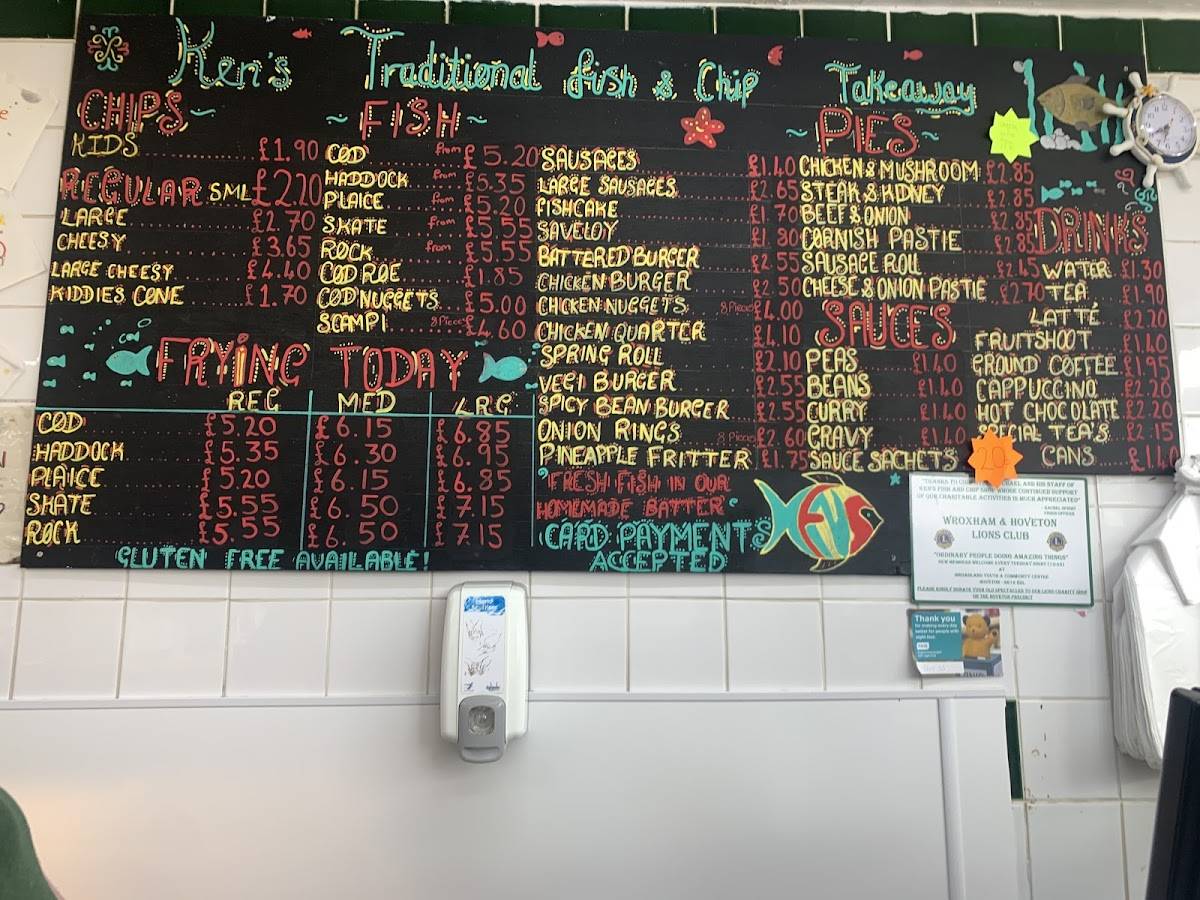 Ken's Traditional fish & Chip Takeaway
CHIPS
KIDS £1.90
REGULAR SML £2.20
LARGE £2.70
CHEESY £3.65
LARGE CHEESY £4.40
KIDDIES CONE £1.70
~ FISH ~
COD from £5.20
HADDOCK from £5.35
PLAICE from £5.20
SKATE from £5.55
ROCK from £5.55
COD ROE £1.85
COD NUGGETS £5.00
SCAMPI 8 Pieces £4.60
FRYING TODAY
REG MED LRG
COD £5.20 £6.15 £6.85
HADDOCK £5.35 £6.30 £6.95
PLAICE £5.20 £6.15 £6.85
SKATE £5.55 £6.50 £7.15
ROCK £5.55 £6.50 £7.15
GLUTEN FREE AVAILABLE!
SAUSAGES £1.40
LARGE SAUSAGES £2.65
FISHCAKE £1.70
SAVELOY £1.80
BATTERED BURGER £2.55
CHICKEN BURGER £2.50
CHICKEN NUGGETS 8 Pieces £4.00
CHICKEN QUARTER £4.10
SPRING ROLL £2.10
VEGI BURGER £2.55
SPICY BEAN BURGER £2.55
ONION RINGS 8 Pieces £2.60
PINEAPPLE FRITTER £1.75
"FRESH FISH IN OUR
HOMEMADE BATTER"
CARD PAYMENTS
ACCEPTED
~ PIES ~
CHICKEN & MUSHROOM £2.85
STEAK & KIDNEY £2.85
BEEF & ONION £2.85
CORNISH PASTIE £2.85
SAUSAGE ROLL £2.45
CHEESE & ONION PASTIE £2.70
SAUCES
PEAS £1.40
BEANS £1.40
CURRY £1.40
GRAVY £1.40
SAUCE SACHETS 20
DRINKS
WATER £1.30
TEA £1.90
LATTÉ £2.20
FRUITSHOOT £1.40
GROUND COFFEE £1.95
CAPPUCCINO £2.20
HOT CHOCOLATE £2.20
SPECIAL TEA'S £2.15
CANS
KEN'S FISH AND CHIP SHOP WHOSE CONTINUED SUPPORT
OF OUR CHARITABLE ACTIVITIES IS MUCH APPRECIATED"
WROXHAM & HOVETON
LIONS CLUB
"ORDINARY PEOPLE DOING AMAZING THINGS"
AT
BROADLAND YOUTH & COMMUNITY CENTRE
PLEASE KINDLY DONATE YOUR OLD SPECTACLES TO OUR LIONS CHARITY SHOP
Thank you
for making every day
better for people with
sight loss.